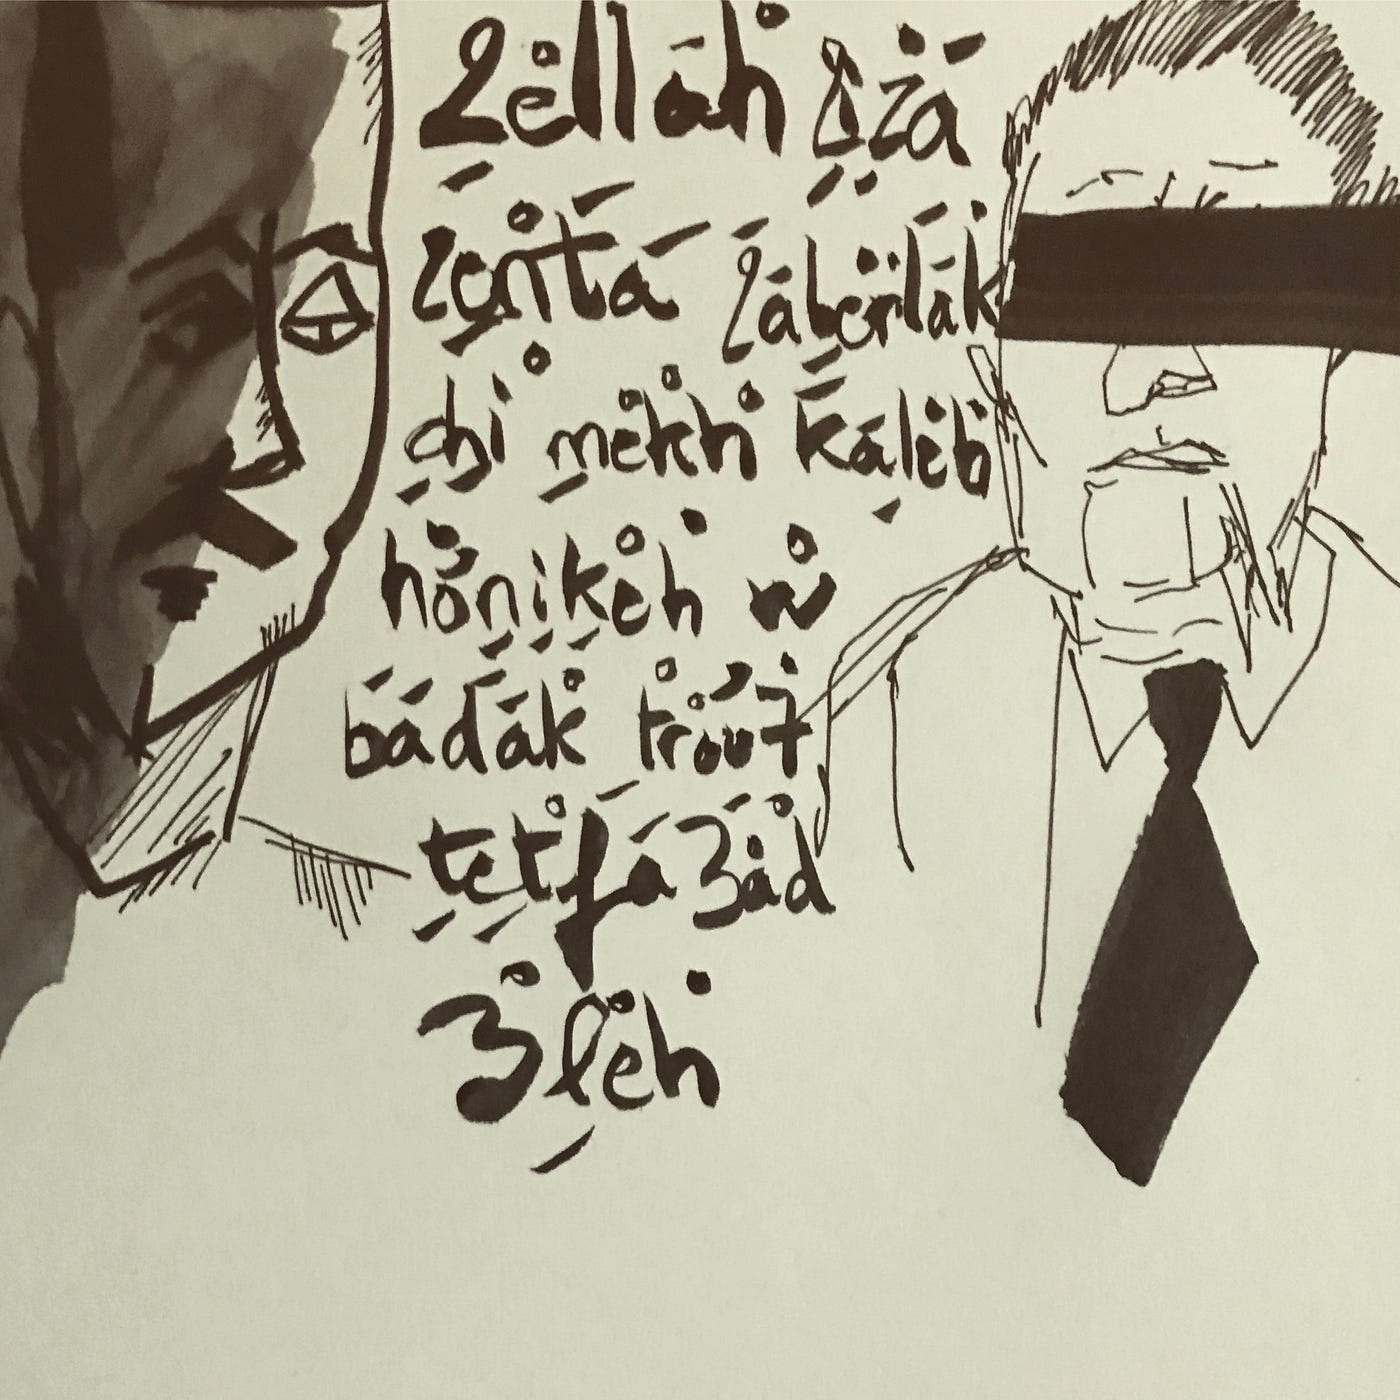 2ellah 2za
2enta 2aberlak
chi mekh kaleb
honikeh w
badak trou7
tetfa3ad
3leh